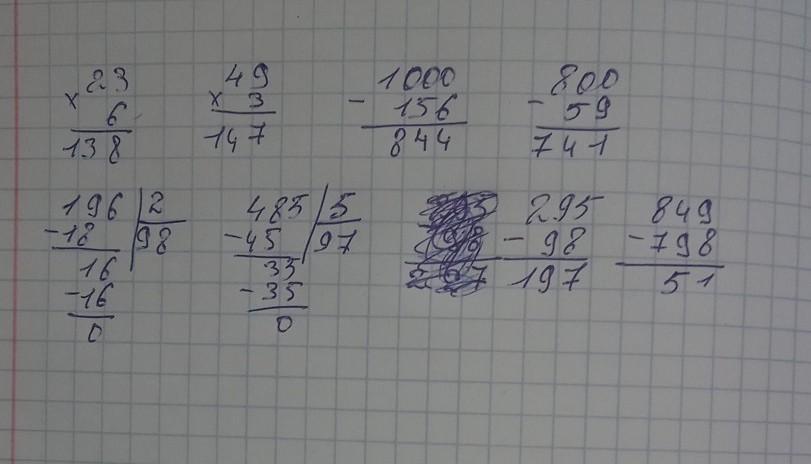 × 23
6
138
× 49
3
147
- 1000
156
844
- 800
59
741
196 | 2
-18 | 98
16
-16
0
485 | 5
-45 | 97
35
-35
0
295
- 98
197
849
- 798
51